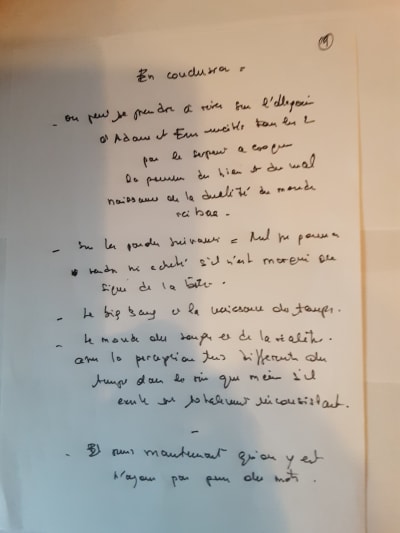 En conclusion =
- on peut se prendre à rêver sur l'allégorie
d'Adam et Eve incités tous les 2
par le serpent à croquer
la pomme du bien et du mal
naissance de la dualité du monde
ici bas -
- Sur les paroles suivantes = Nul ne pourra
vendre ni acheter s'il n'est marqué du
signe de la bête.
- Le big bang et la naissance du temps.
- Le monde du songe et de la réalité.
avec la perception très différente du
temps dans le rêve que même s'il
existe est totalement inconsistant.
-
- Et puis maintenant qu'on y est
n'ayons pas peur des mots.